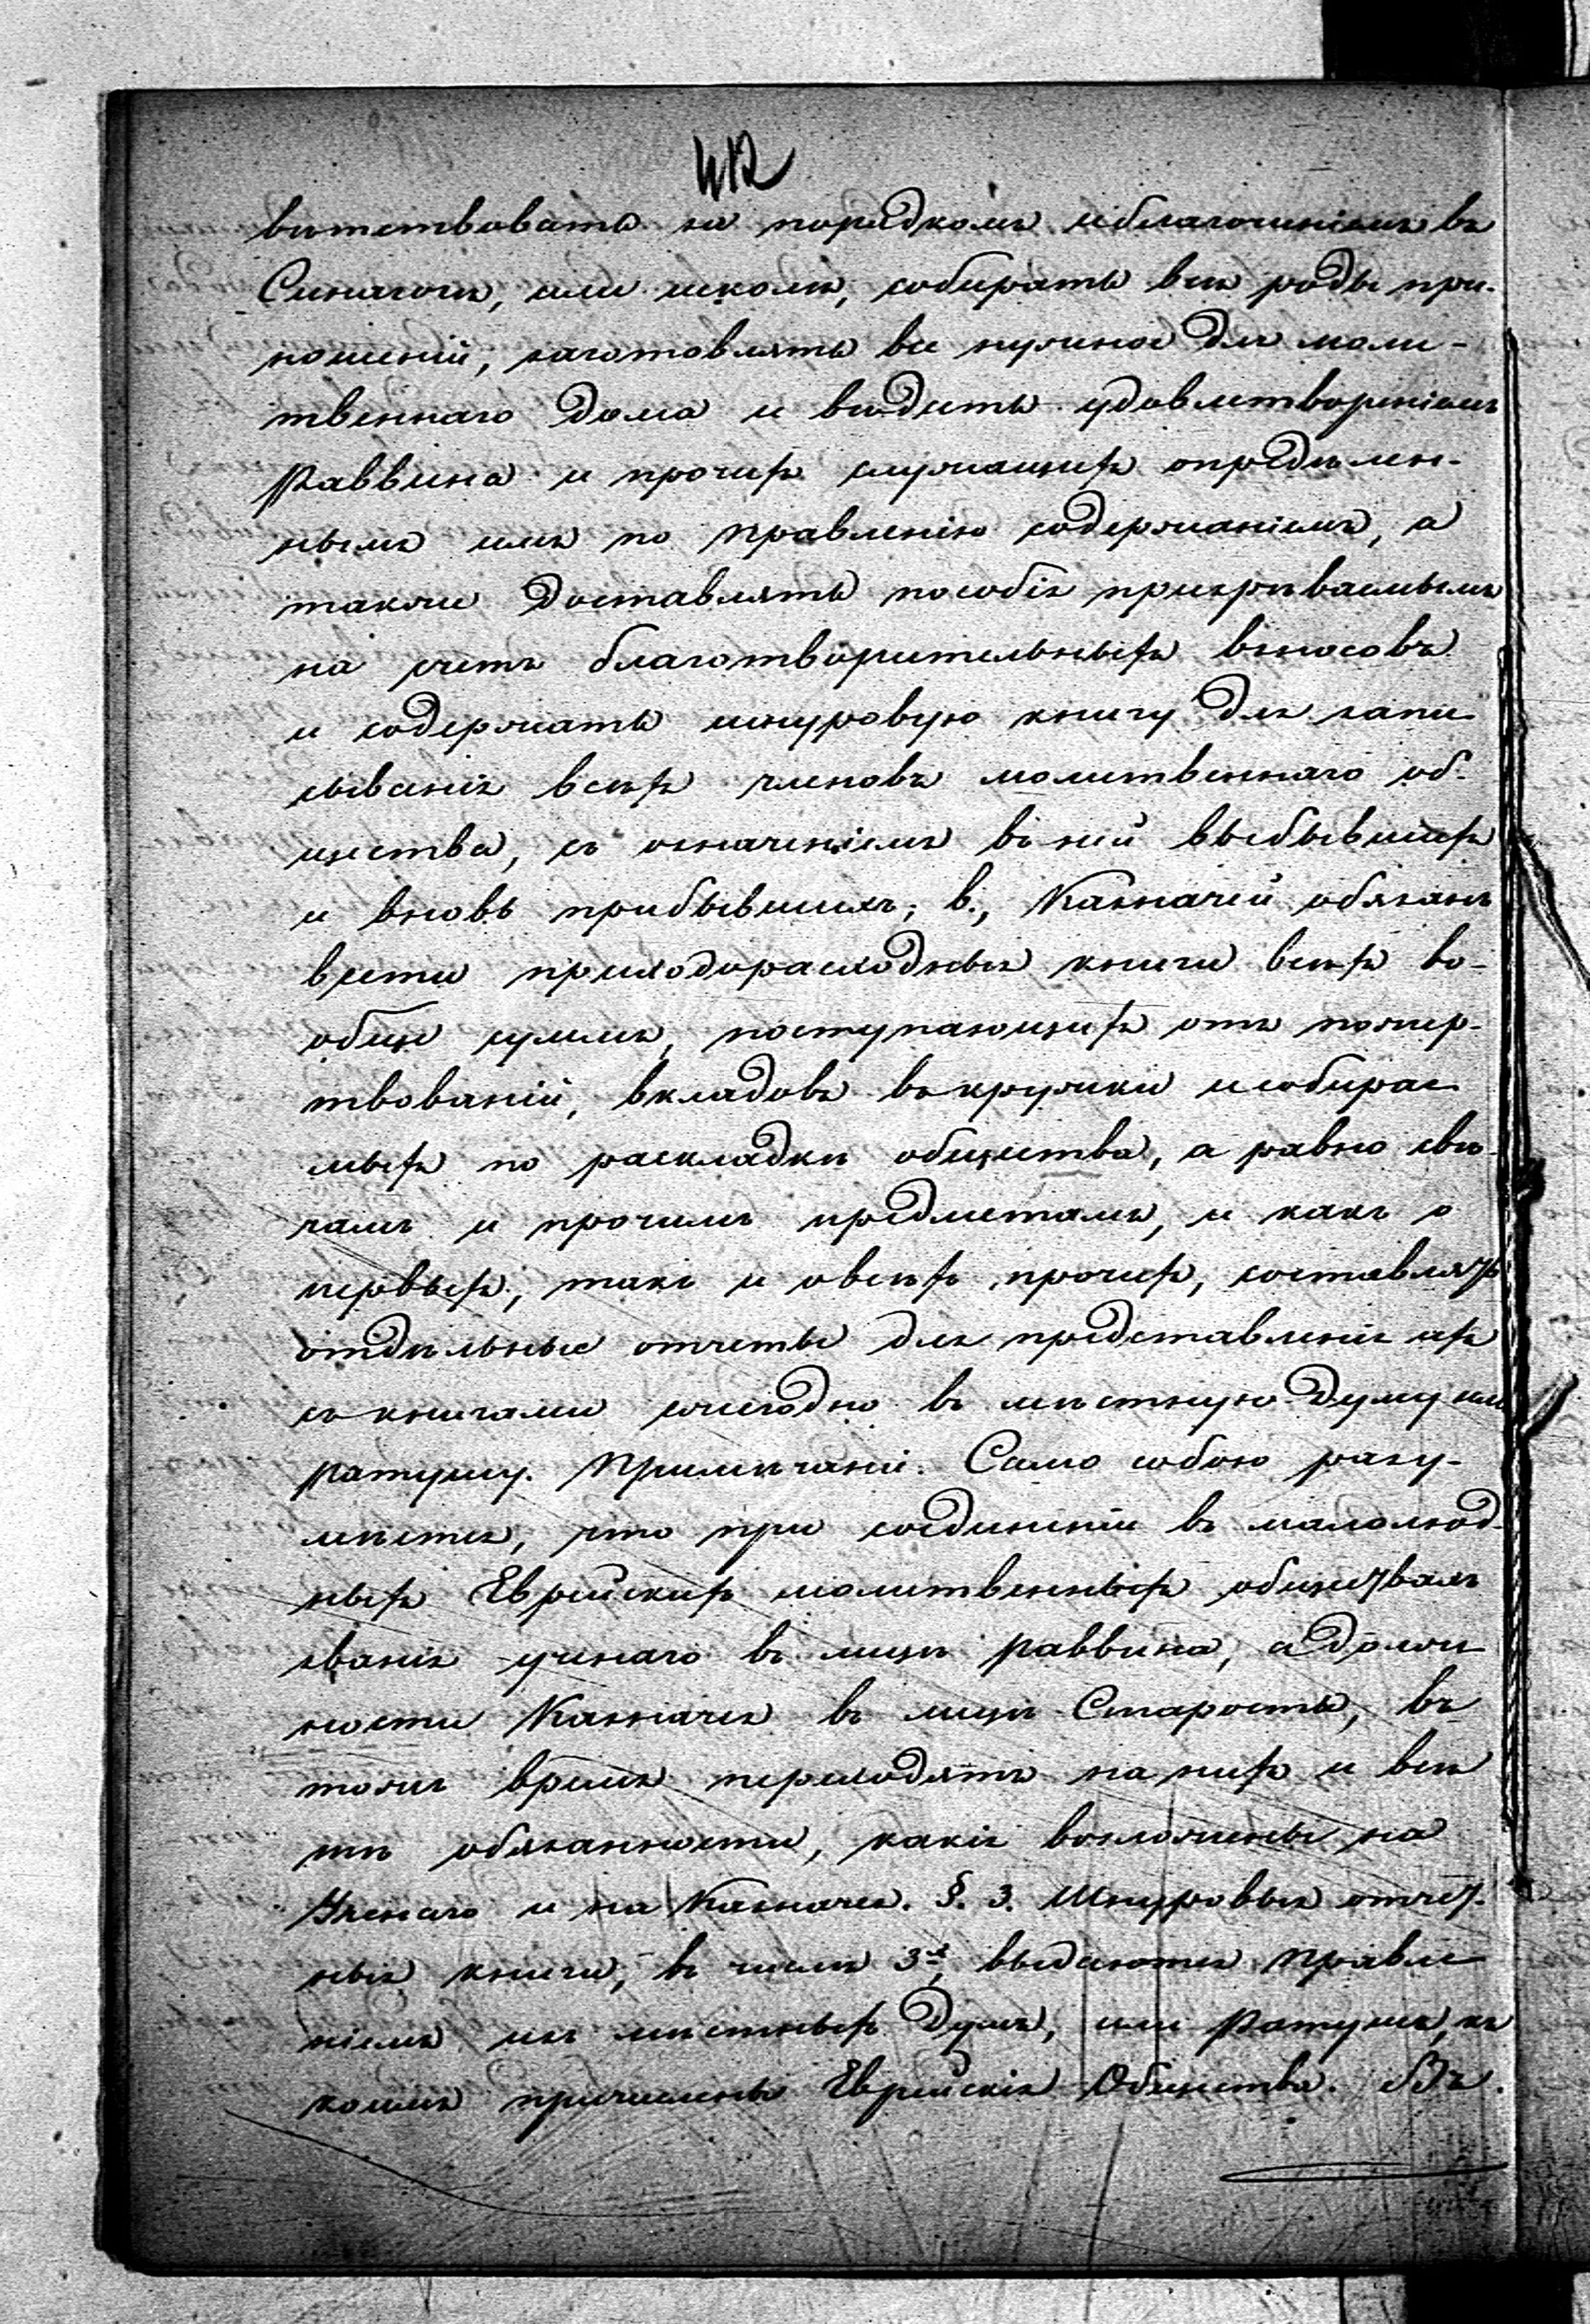 412
вѣтствовать за порядкомъ и благочиніемъ въ
Синагогѣ, или школѣ, собирать всѣ роды при-
ношеній, заготовлять все нужное для моли-
твеннаго дома и вѣдать удовлетвореніемъ
Раввина и прочихъ служащихъ опредѣлен-
нымъ имъ по Правленію содержаніемъ, а
также доставлять пособія призрѣваемымъ
на счетъ благотворительныхъ взносовъ
и содержать шнуровую книгу для запи-
сыванія всѣхъ членовъ молитвеннаго об-
щества, съ означеніемъ въ ней выбывшихъ
и вновь прибывшихъ; в., Казначей обязанъ
вести приходорасходныя книги всѣхъ во-
обще суммъ, поступающихъ отъ пожер-
твованій, вкладовъ въ кружки и собирае-
мыхъ по раскладкѣ общества, а равно свѣ-
чамъ и прочимъ предметамъ, и какъ о
первыхъ, такъ и о всѣхъ прочихъ, составлять
отдѣльные отчеты для представленія ихъ
съ книгами ежегодно въ мѣстную Думу или
Ратушу. Примѣчаніе. Само собою разу-
мѣется, что при соединеніи въ малолюд-
ныхъ Еврейскихъ молитвенныхъ обществахъ
званія ученаго въ лицѣ Раввина, а долж-
ности Казначея въ лицѣ Старосты, въ
тоже время переходятъ на нихъ и всѣ
тѣ обязанности, какія возложены на
Ученаго и на Казначея. §. 3. Шнуровыя отчет-
ныя книги, въ числѣ 3-хъ, выдаются Правле-
ніемъ изъ мѣстныхъ Думъ, или Ратушъ, къ
коимъ причислены Еврейскія Общества. Въ